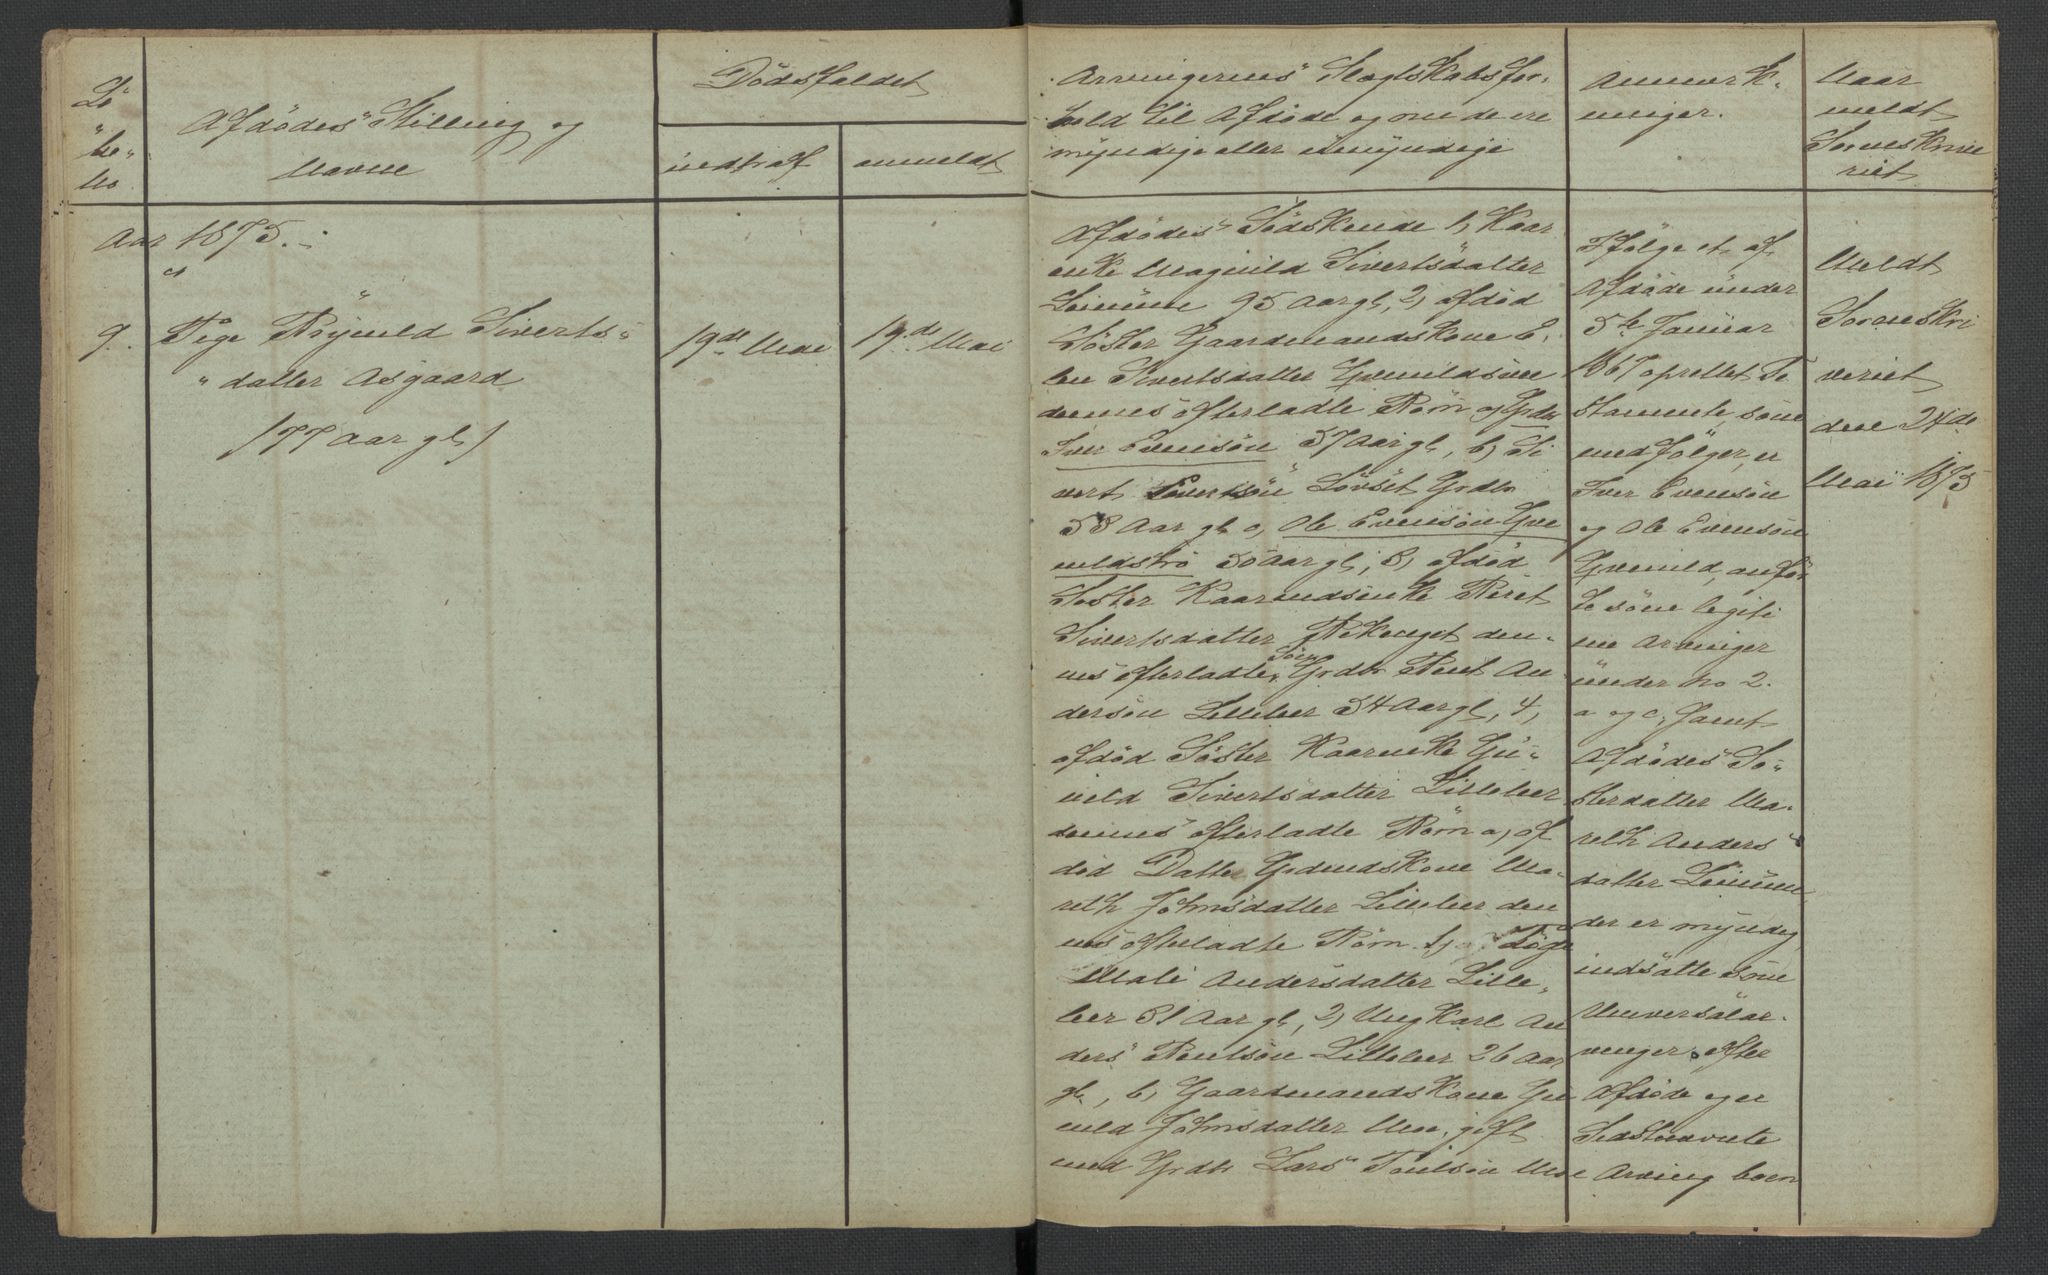 Lö
be-
No
Afdödes Stilling og
Navne
Dödsfaldet
indtraf
anmeldt
Arvingernes Slægtskabsfor-
hold til Afdöde og om de ere
myndige eller umyndige
Anmærk-
ninger.
Naar
meldt
Sorenskrive
riet
Aar 1875.
9. Pige Brynild Siverts-
datter Asgaard
/77 Aar gl/
19de Mai
19de Mai
Afdödes Södskende 1, Kaar
enke Magnild Sivertsdatter
Leinum 95 Aar gl, 2, afdød
Söster Gaardmandskone E-
len Sivertsdatter
dennes efterladte Börn a, Grdbr
Iver Evensön 57 Aar gl, b, Si
vert Evensön Lövset Grdbr
53 Aar gl c, Ole Evensön Gre
nildströ 50 Aar gl, 3, afdöd
Söster Kaarmandsenke Beret
Sivertsdatter den-
nes efterladte Sön Grdbr Bent An
dersön Lilleleer 54 Aar gl, 4,
afdöd Söster Kaarenke Gu-
nild Sivertsdatter Lilleleer
dennes efterladte Börn a, af
död Datter Grdmdskone Ma-
reth Johnsdatter Lilleleer den
nes efterladte Börn 1, Pige
Mali Andersdatter Lille-
leer 31 Aar gl, 2, Ung Karl An
ders Bentsön Lilleleer 26 Aar
gl, b, Gaardmandskone Gu
nild Johnsdatter Moe, gift
med Grdbr Lars Paulsön Moe
Ifölge et af
Afdöde under
5te Januar
1867 oprettet Te
stamente, som
medfölger, er
Iver Evensön
og Ole Evensön
Grenild, anför
te som legiti
me Arvinger
under No 2.
a og c, samt
Afdödes Sö-
sterdatter Ma-
reth Anders
datter Leinum
der er myndig,
indsatte som
Universalar-
vinger efter
Afdöde og er
Sidstnævnte
Arving boen
Meldt
Sorenskri
veriet
den 24de
Mai 1875